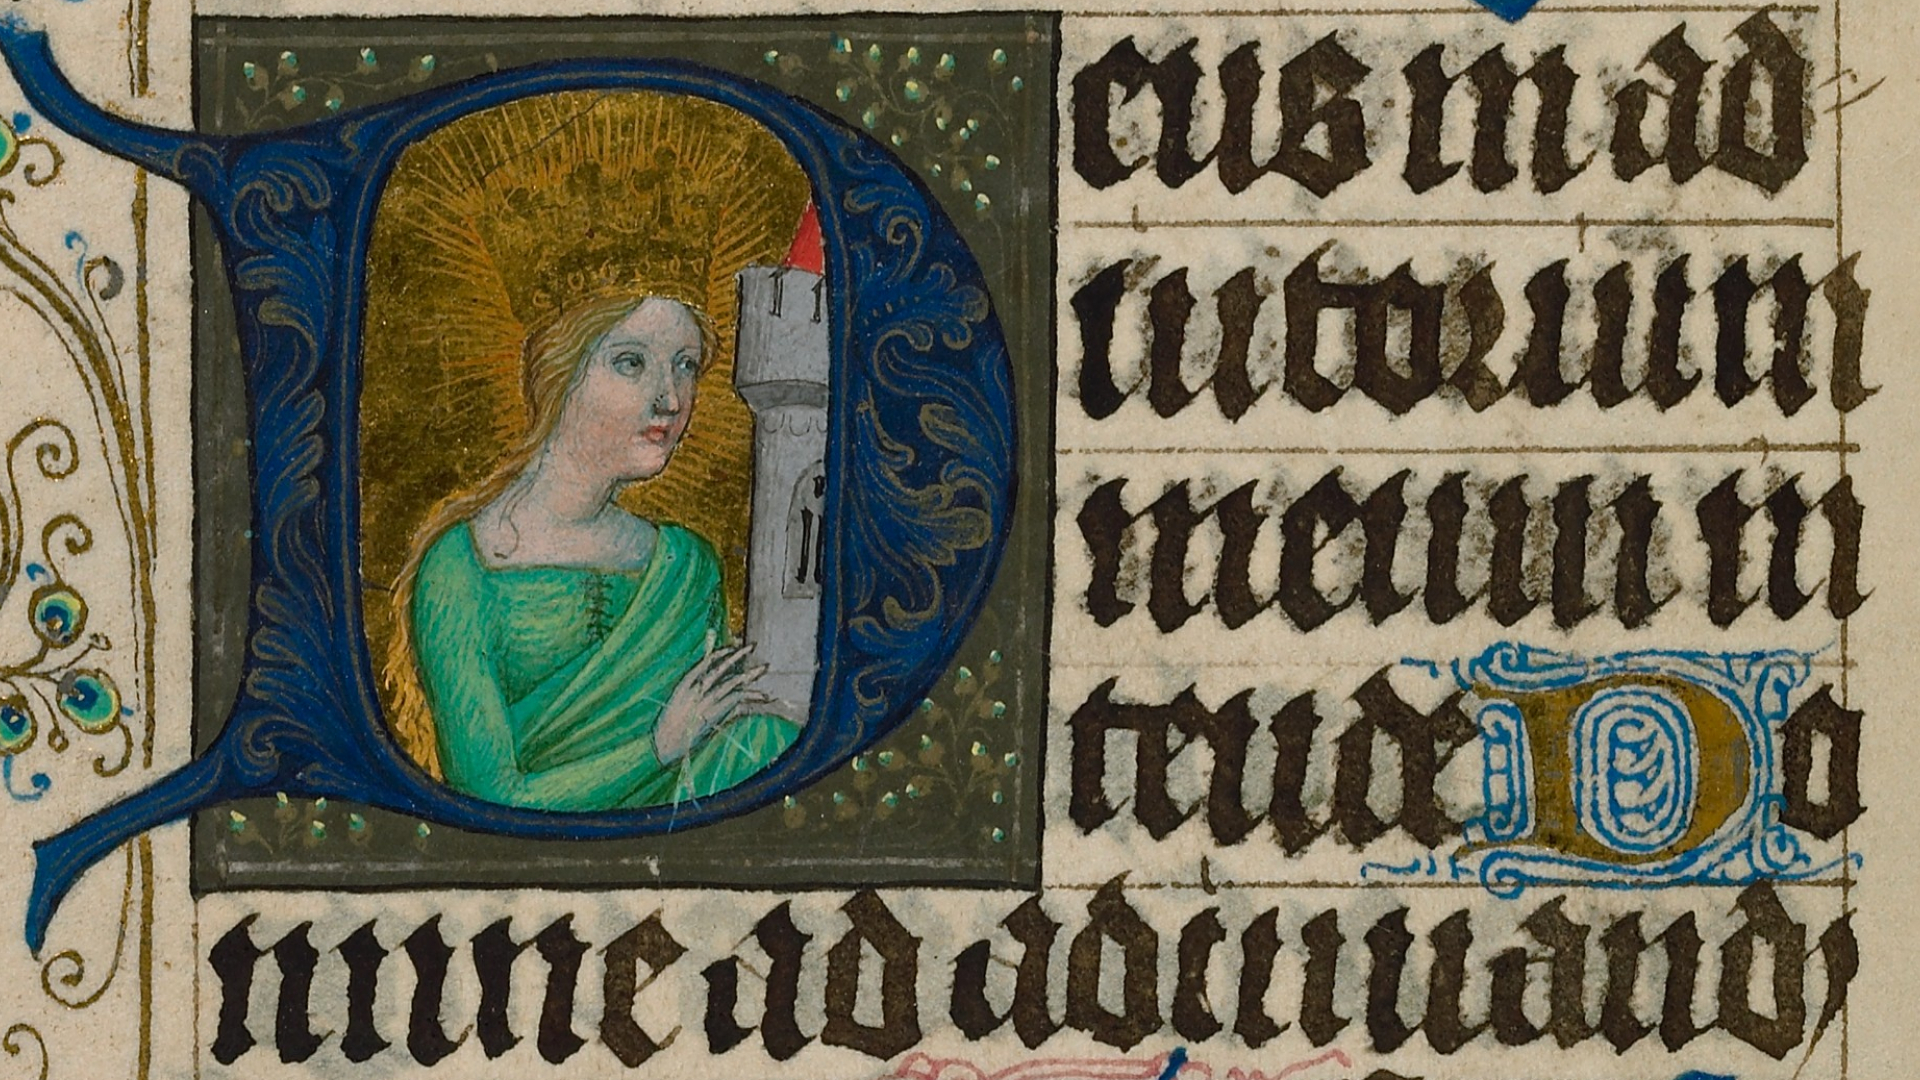 Deus in ad
iutorium
meum in
tende Do
mine ad adiuuand